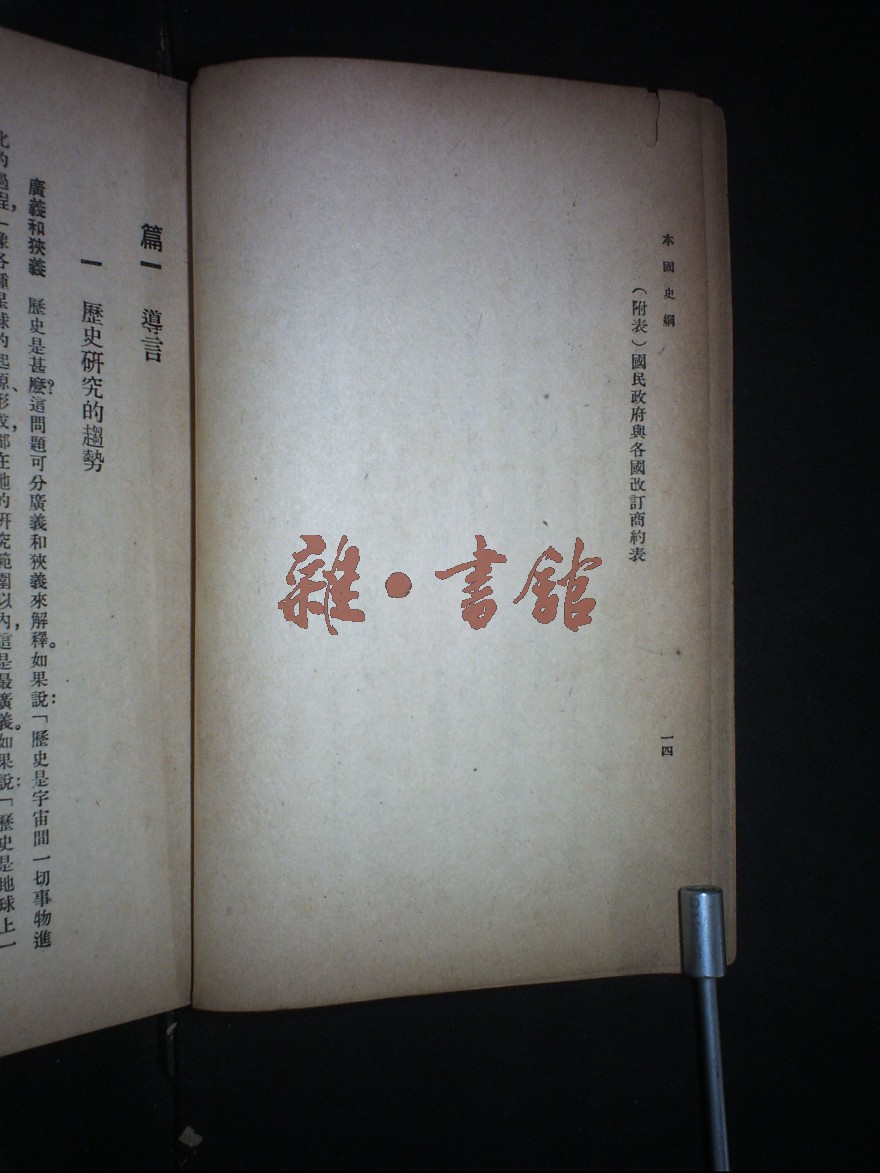 本國史綱
(附表)國民政府與各國改訂商約表
一四
雜·書館
篇一 導言
一 歷史研究的趨勢
廣義和狹義 歷史是甚麼?這問題可分廣義和狹義來解釋。如果說:「歷史是宇宙間一切事物進
化的過程,像各種星球的起原、形成,都在牠的研究範圍以內,這是最廣義。如果說:「歷史是地球上一